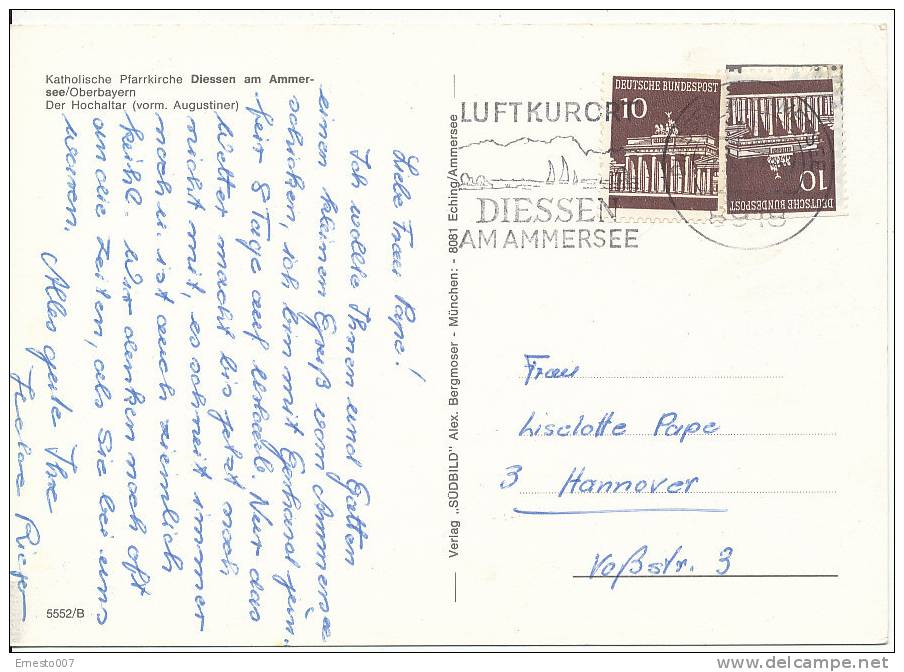 Katholische Pfarrkirche Diessen am Ammer-
see/Oberbayern
Der Hochaltar (vorm. Augustiner)
Liebe Frau Pape!
Ich wollte Ihnen und Gatten
einen kleinen Gruß vom Ammersee
schicken, ich bin mit Gerhard
für 8 Tage auf Urlaub. Nur das
Wetter macht bis jetzt noch
nicht mit, es schneit immer
noch u. ist auch ziemlich
kühl. Wir denken noch oft
an die Zeiten, als Sie bei uns
waren. Alles gute Ihre
5552/B
Verlag „SÜDBILD" Alex. Bergmoser - München: - 8081 Eching/Ammersee
LUFTKURORT
DIESSEN
AM AMMERSEE
DEUTSCHE BUNDESPOST
10
DEUTSCHE BUNDESPOST
10
Frau
Liselotte Pape
3 Hannover
Voßstr. 3
Ernesto007
delcampe.net